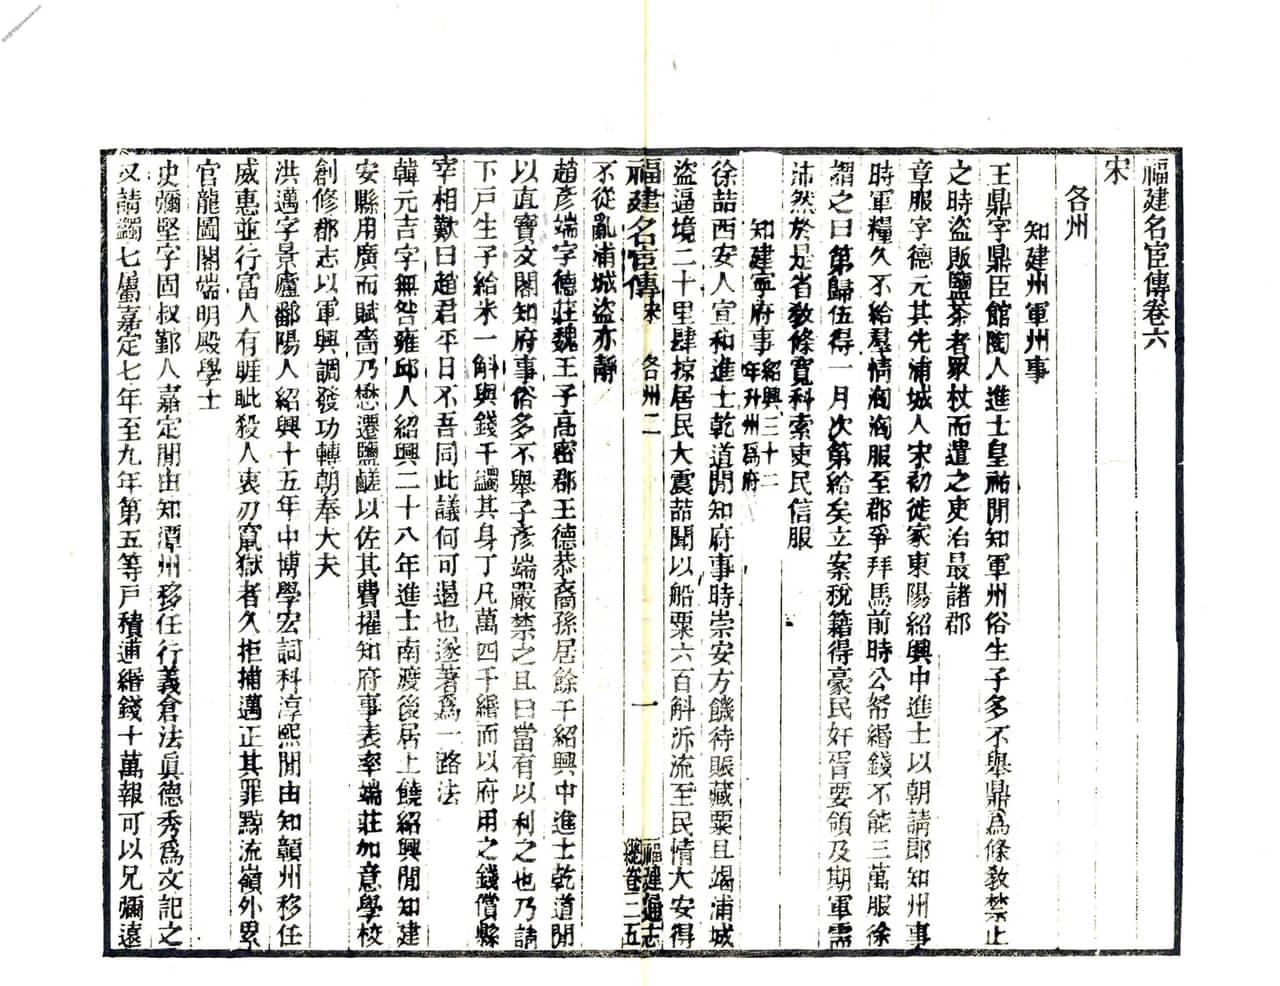 福建名宦傳卷六
宋
各州
知建州軍州事
王鼎字鼎臣館陶人進士皇祐閒知軍州俗生子多不舉鼎爲條教禁止
之時盜販鹽茶者眾杖而遣之吏治最諸郡
章服字德元其先浦城人宋初徙家東陽紹興中進士以朝請郎知州事
時軍糧久不給羣情洶洶服至郡爭拜馬前時公帑緡錢不能三萬服徐
謂之曰第歸伍得一月次第給矣立案稅籍得豪民奸胥要領及期軍需
沛然於是省教條寬科索吏民信服
知建寧府事紹興三十二年升州爲府
徐喆西安人宣和進士乾道閒知府事時崇安方饑待賑藏粟且竭浦城
盜逼境二十里肆掠居民大震喆聞以船粟六百斛泝流至民情大安得
不從亂浦城盜亦靜
福建名宦傳 宋 各州二 一 福建通志總卷三五
趙彥端字德莊魏王子高密郡王德恭裔孫居餘干紹興中進士乾道閒
以直寶文閣知府事俗多不舉子彥端嚴禁之且曰當有以利之也乃請
下戶生子給米一斛與錢千蠲其身丁凡萬四千緡而以府用之錢償縣
宰相歎曰趙君平日不吾同此議何可遏也遂著爲一路法
韓元吉字無咎雍邱人紹興二十八年進士南渡後居上饒紹興閒知建
安縣用廣而賦嗇乃懋遷鹽鹺以佐其費擢知府事表率端莊加意學校
創修郡志以軍興調發功轉朝奉大夫
洪邁字景廬鄱陽人紹興十五年中博學宏詞科淳熙閒由知贑州移任
威惠並行富人有睚眦殺人衷刃竄獄者久拒捕邁正其罪黥流嶺外累
官龍圖閣端明殿學士
史彌堅字固叔鄞人嘉定閒由知潭州移任行義倉法眞德秀爲文記之
又請蠲七屬嘉定七年至九年第五等戶積逋緡錢十萬報可以兄彌遠